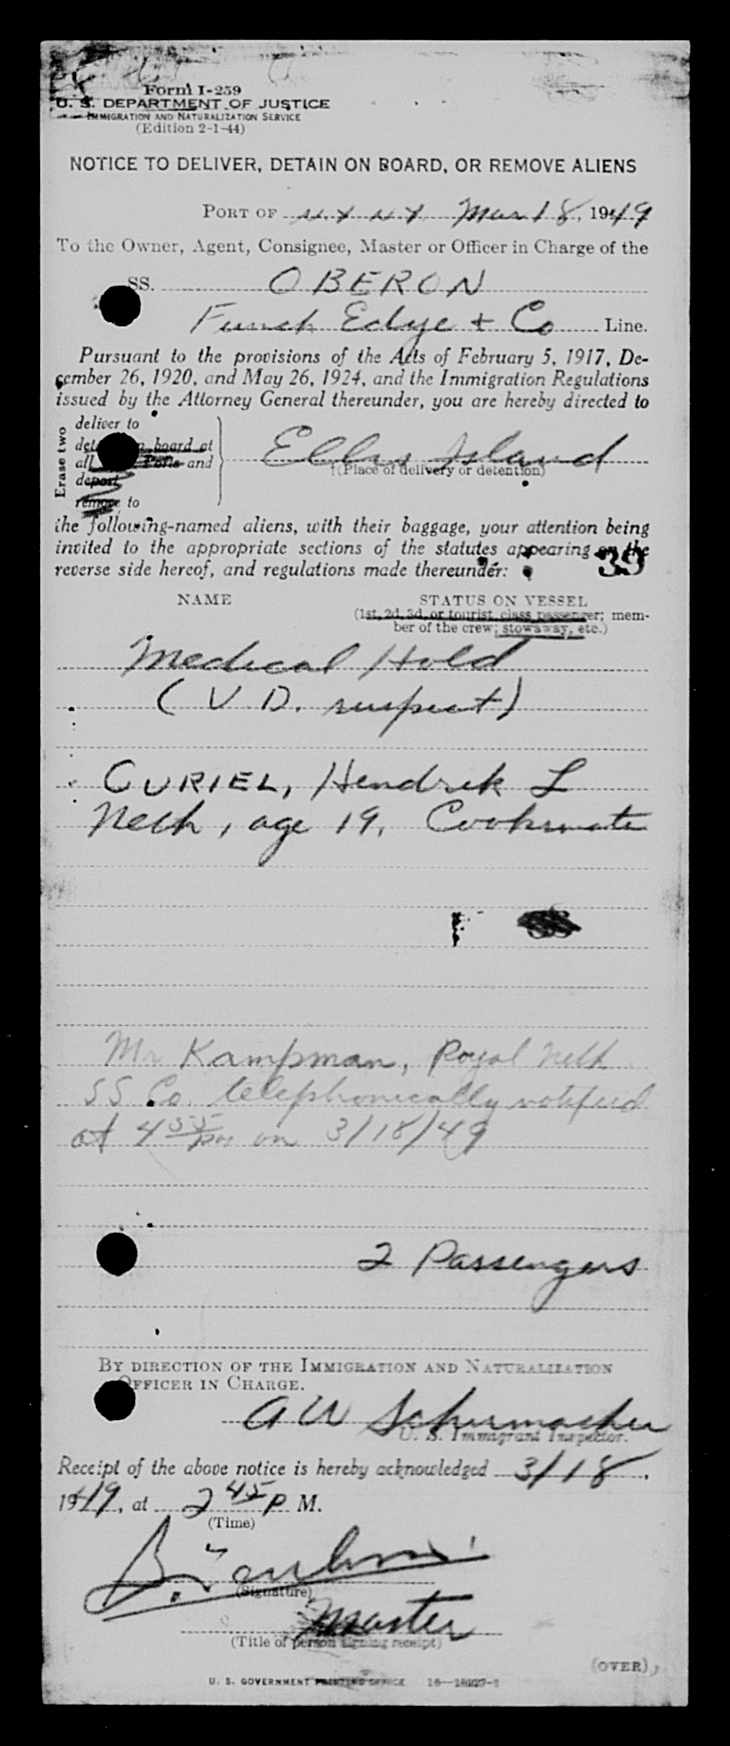 Form I-259
U. S. DEPARTMENT OF JUSTICE
IMMIGRATION AND NATURALIZATION SERVICE
(Edition 2-1-44)
NOTICE TO DELIVER, DETAIN ON BOARD, OR REMOVE ALIENS
PORT OF N.Y. N.Y. Mar 18, 1949
To the Owner, Agent, Consignee, Master or Officer in Charge of the
SS. OBERON
Funch Edye + Co Line.
Pursuant to the provisions of the Acts of February 5, 1917, De-
cember 26, 1920, and May 26, 1924, and the Immigration Regulations
issued by the Attorney General thereunder, you are hereby directed to
Erase two
deliver to
board at
all Ports and
deport
remove to
Ellis Island
(Place of delivery or detention)
the following-named aliens, with their baggage, your attention being
invited to the appropriate sections of the statutes appearing on the
reverse side hereof, and regulations made thereunder:
39
NAME
STATUS ON VESSEL
(1st, 2d, 3d, or tourist class passenger; mem-
ber of the crew; stowaway, etc.)
Medical Hold
(V.D. suspect)
CURIEL, Hendrik L
Neth, age 19, Cooksmate
Mr Kampman, Royal Neth
SS Co. telephonically notified
at 4 55 pm on 3/18/49
2 Passengers
BY DIRECTION OF THE IMMIGRATION AND NATURALIZATION
OFFICER IN CHARGE.
A W Schurmacher
U. S. Immigrant Inspector.
Receipt of the above notice is hereby acknowledged 3/18,
1949, at 2 45 P M.
(Time)
(Signature)
Master
(Title of person signing receipt)
(OVER)
U. S. GOVERNMENT PRINTING OFFICE